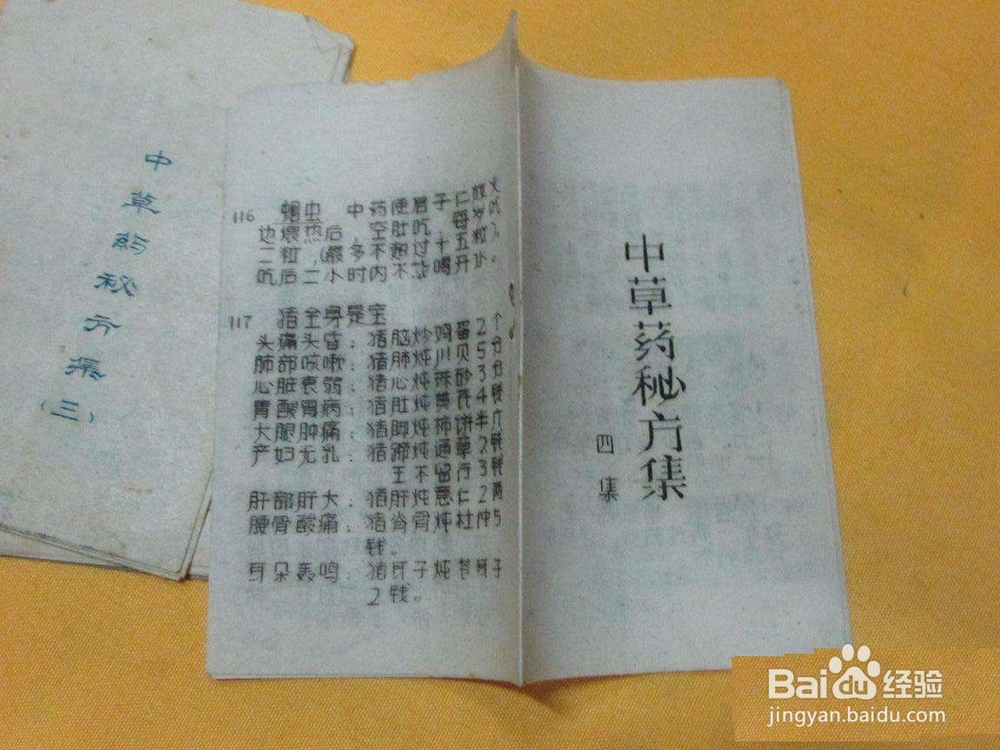 中草药秘方集
(三)
116 蛔虫 中药使君子仁放火
边煨热后,空肚吃,每岁吃
二粒,(最多不超过十五粒)。
吃后二小时内不能喝开水。
117 猪全身是宝
头痛头昏:猪脑炒鸡蛋2个
肺部咳嗽:猪肺炖川贝5分
心脏衰弱:猪心炖珠砂3分
胃酸胃病:猪肚炖黄芪4钱
大腿肿痛:猪脚炖柿饼半斤
产妇无乳:猪蹄炖通草2钱
王不留行3钱
肝部肝大:猪肝炖意仁2两
腰骨酸痛:猪肖骨炖杜仲5
钱。
耳朵轰鸣:猪耳子炖苍耳子
2钱。
中草药秘方集
四集
Baidu经验
jingyan.baidu.com